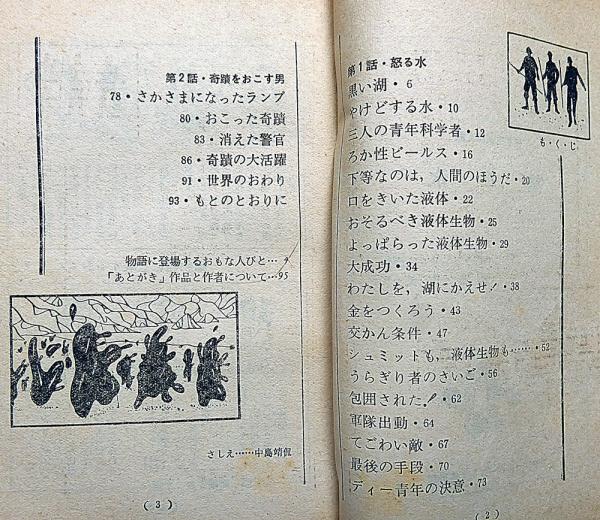 も・く・じ
第1話・怒る水
黒い湖・6
やけどする水・10
三人の青年科学者・12
ろか性ビールス・16
下等なのは，人間のほうだ・20
口をきいた液体・22
おそるべき液体生物・25
よっぱらった液体生物・29
大成功・34
わたしを，湖にかえせ！・38
金をつくろう・43
交かん条件・47
シュミットも，液体生物も……・52
うらぎり者のさいご・56
包囲された！・62
軍隊出動・64
てごわい敵・67
最後の手段・70
ディー青年の決意・73
(2)
第2話・奇蹟をおこす男
78・さかさまになったランプ
80・おこった奇蹟
83・消えた警官
86・奇蹟の大活躍
91・世界のおわり
93・もとのとおりに
物語に登場するおもな人びと…4
「あとがき」作品と作者について…95
さしえ……中島靖侃
(3)